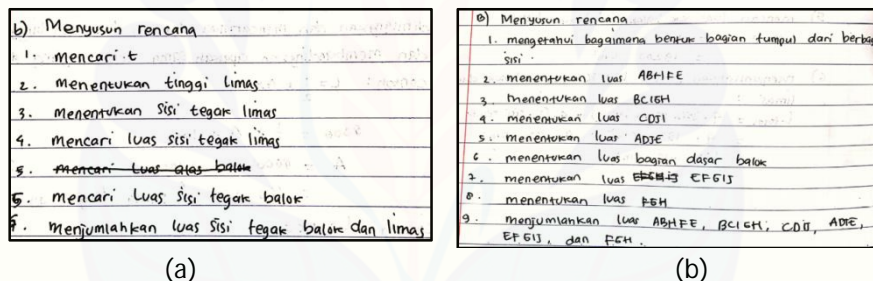 b) Menyusun rencana
1. mencari t
2. menentukan tinggi limas
3. menentukan sisi tegak limas
4. mencari luas sisi tegak limas
5. mencari luas alas balok
5. mencari luas sisi tegak balok
7. menjumlahkan luas sisi tegak balok dan limas
(a)
B) Menyusun rencana
1. mengetahui bagaimana bentuk bagian tumpul dari berbag
sisi.
2. menentukan luas ABHFE
3. menentukan luas BCIGH
4. menentukan luas CDJI
5. menentukan luas ADJE
6. menentukan luas bagian dasar balok
7. menentukan luas EFGIJ
8. menentukan luas FGH
9. menjumlahkan luas ABHFE, BCIGH, CDJI, ADJE,
EFGIJ, dan FGH.
(b)